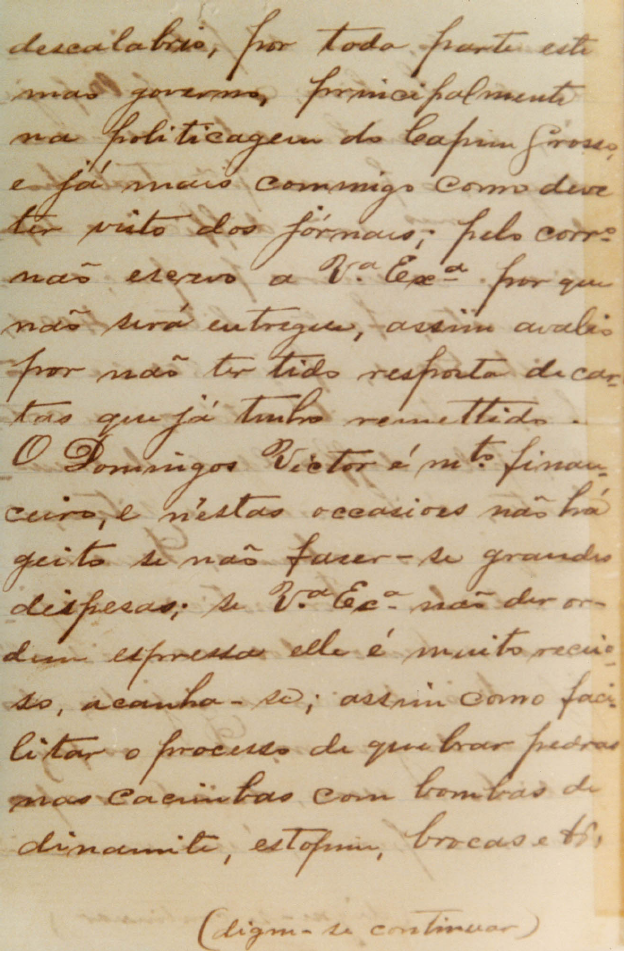 descalabrio, por toda parte este
mao governo, principalmente
na politicagem do Capim Grosso,
e já mais commigo como deve
ter visto dos jórnais; pelo corr.º
não escrevo a V.ª Ex.ª por que
não será entregue, assim avalio
por não ter tido resposta de car-
tas que já tenho remettido.
O Domingos Victor é m.to finan-
ceiro, e n'estas occasioes não há
geito se não faser-se grandes
dispesas; se V.ª Ec.ª não der or-
dem espressa elle é muito receio-
so, acanha-se; assim como faci-
litar o processo de quebrar pedras
nas cacimbas com bombas de
dinamite, estopim, brocas e &,
(digni-se continuar)